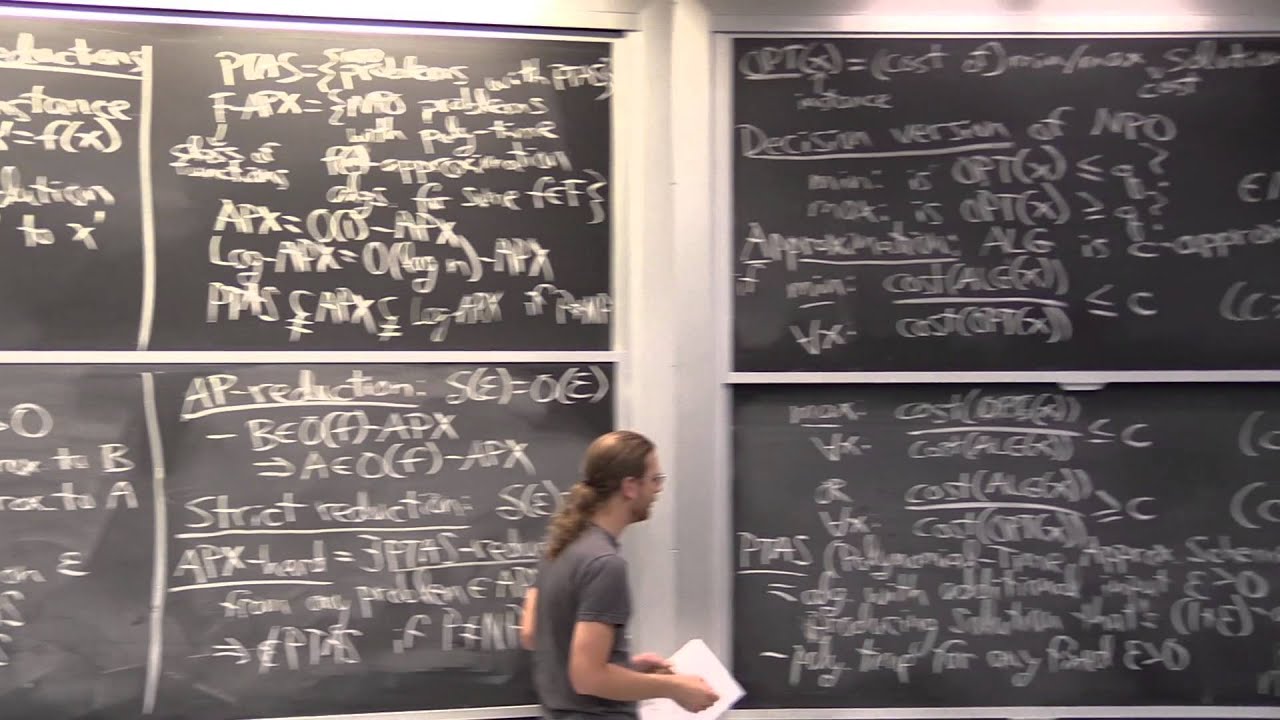 reductions
instance
x'=f(x)
solution
to x'
PTAS={problems with PTAS}
F-APX={NPO problems
with poly-time
class of functions
f(n)-approximation
algs. for some f∈F}
APX=O(1)-APX
Log-APX=O(log n)-APX
PTAS ⊊ APX ⊊ Log-APX if P≠NP
>0
approx to B
approx to A
ε
AP-reduction: S(ε)=O(ε)
- B∈O(f)-APX
⇒ A∈O(f)-APX
Strict reduction: S(ε)
APX-hard = ∃PTAS-reduc
from any problem ∈ AP
⇒ ∉PTAS if P≠NP
OPT(x)=(cost of) min/max cost solution
instance
Decision version of NPO
min: is OPT(x) ≤ q?
max: is OPT(x) ≥ q?
Approximation: ALG is c-approx
if min: cost(ALG(x))
∀x: cost(OPT(x)) ≤ c
max: cost(OPT(x))
∀x: cost(ALG(x)) ≤ c
or cost(ALG(x))
∀x: cost(OPT(x)) ≥ c
PTAS (Polynomial-Time Approx. Schem
= alg with additional input ε>0
producing solution that's (1+ε)-
- poly time for any fixed ε>0